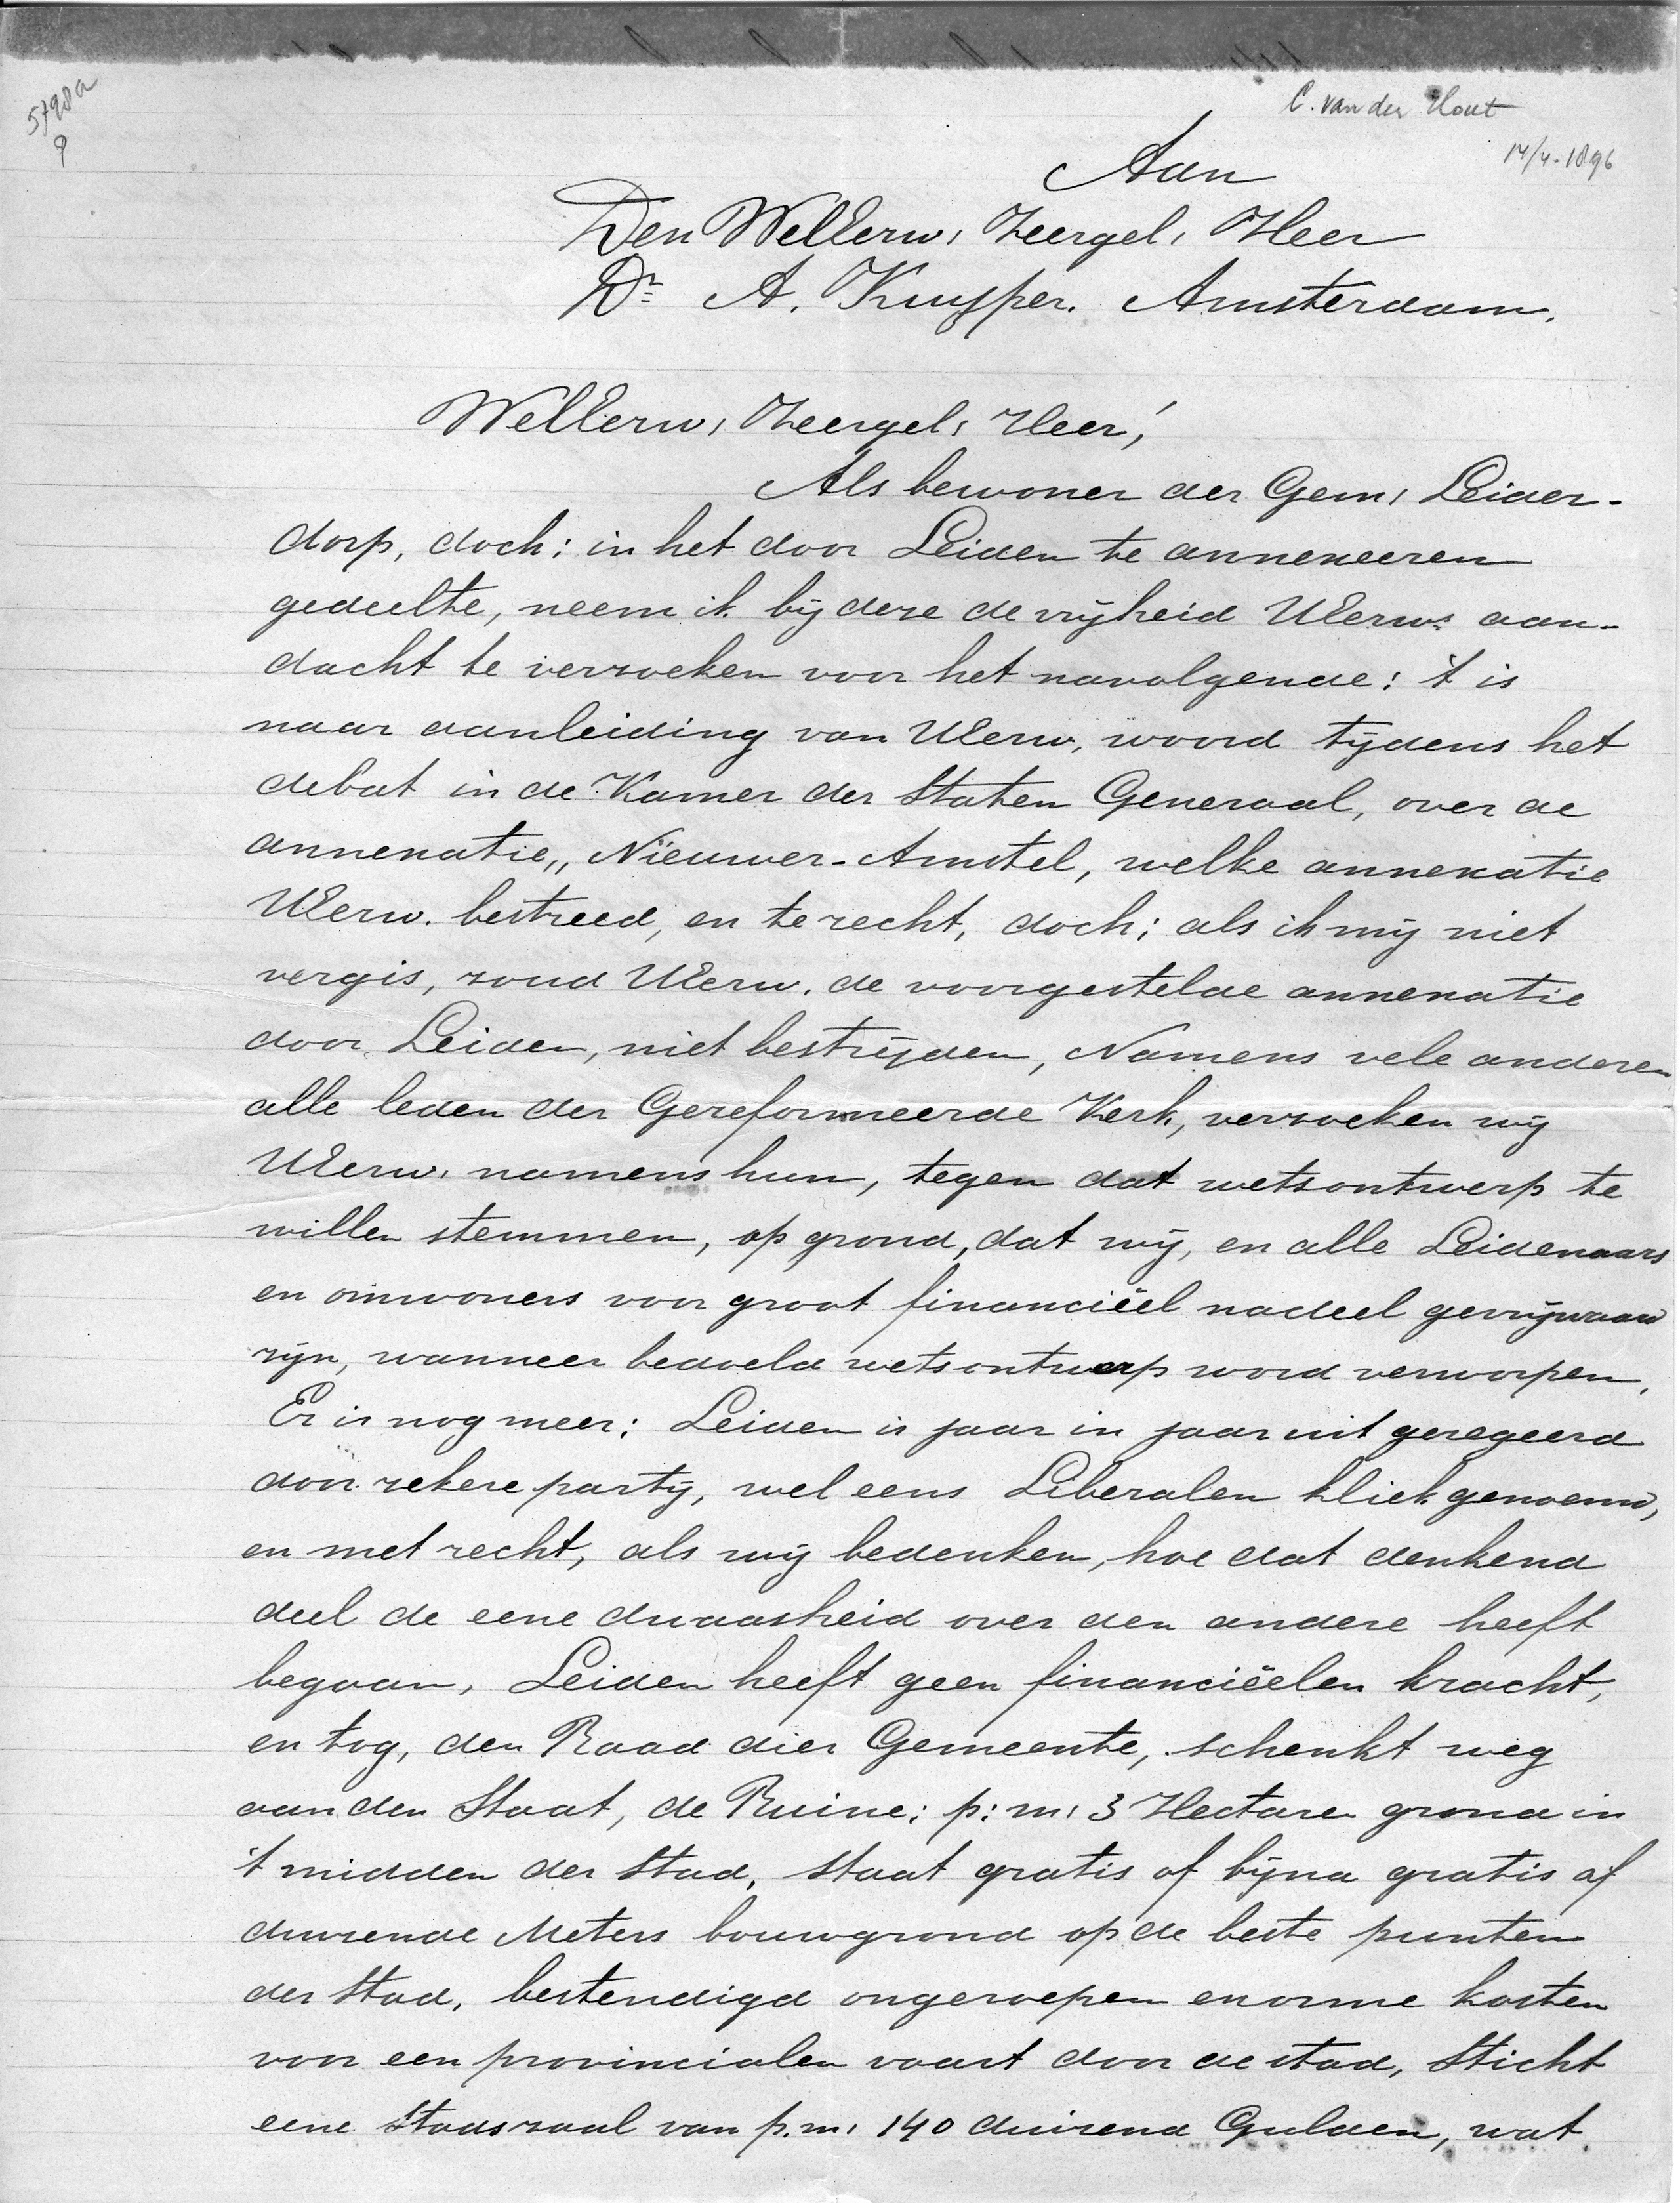 5798a
9
C. van der Hout
14/4-1896
Aan
Den WelEerw, Zeergel, Heer
Dr A. Kuyper. Amsterdam.
WelEerw, Zeergel, Heer,
Als bewoner der Gem, Leider-
dorp, doch; in het door Leiden te annexeeren
gedeelte, neem ik bij deze de vrijheid UEerw: aan-
dacht te verzoeken voor het navolgende: 't is
naar aanleiding van UEerw, woord tijdens het
debat in de Kamer der Staten Generaal, over de
annexatie,, Nieuwer-Amstel, welke annexatie
UEerw. bestreed, en terecht, doch; als ik mij niet
vergis, zoud UEerw. de voorgestelde annexatie
door Leiden, niet bestrijden, Namens vele anderen
alle leden der Gereformeerde Kerk, verzoeken wij
UEerw, namens hun, tegen dat wetsontwerp te
willen stemmen, op grond, dat wij, en alle Leidenaars
en omwoners voor groot financiëel nadeel gevrijwaard
zijn, wanneer bedoeld wetsontwerp word verworpen.
Er is nog meer: Leiden is jaar in jaar uit geregeerd
door zekere partij, wel eens Liberalen kliek genoemd,
en met recht, als wij bedenken, hoe dat denkend
deel de eene dwaasheid over den andere heeft
begaan, Leiden heeft geen financiëelen kracht,
en tog, den Raad dier Gemeente, schenkt weg
aan den Staat, de Ruine: p: m: 3 Hectaren grond in
't midden der Stad, staat gratis of bijna gratis af
duizende Meters bouwgrond op de beste punten
der Stad, bestendigd ongeroepen enorme kosten
voor een provincialen vaart door de stad, Sticht
eene Stadszaal van p.m, 140 duizend Gulden, wat